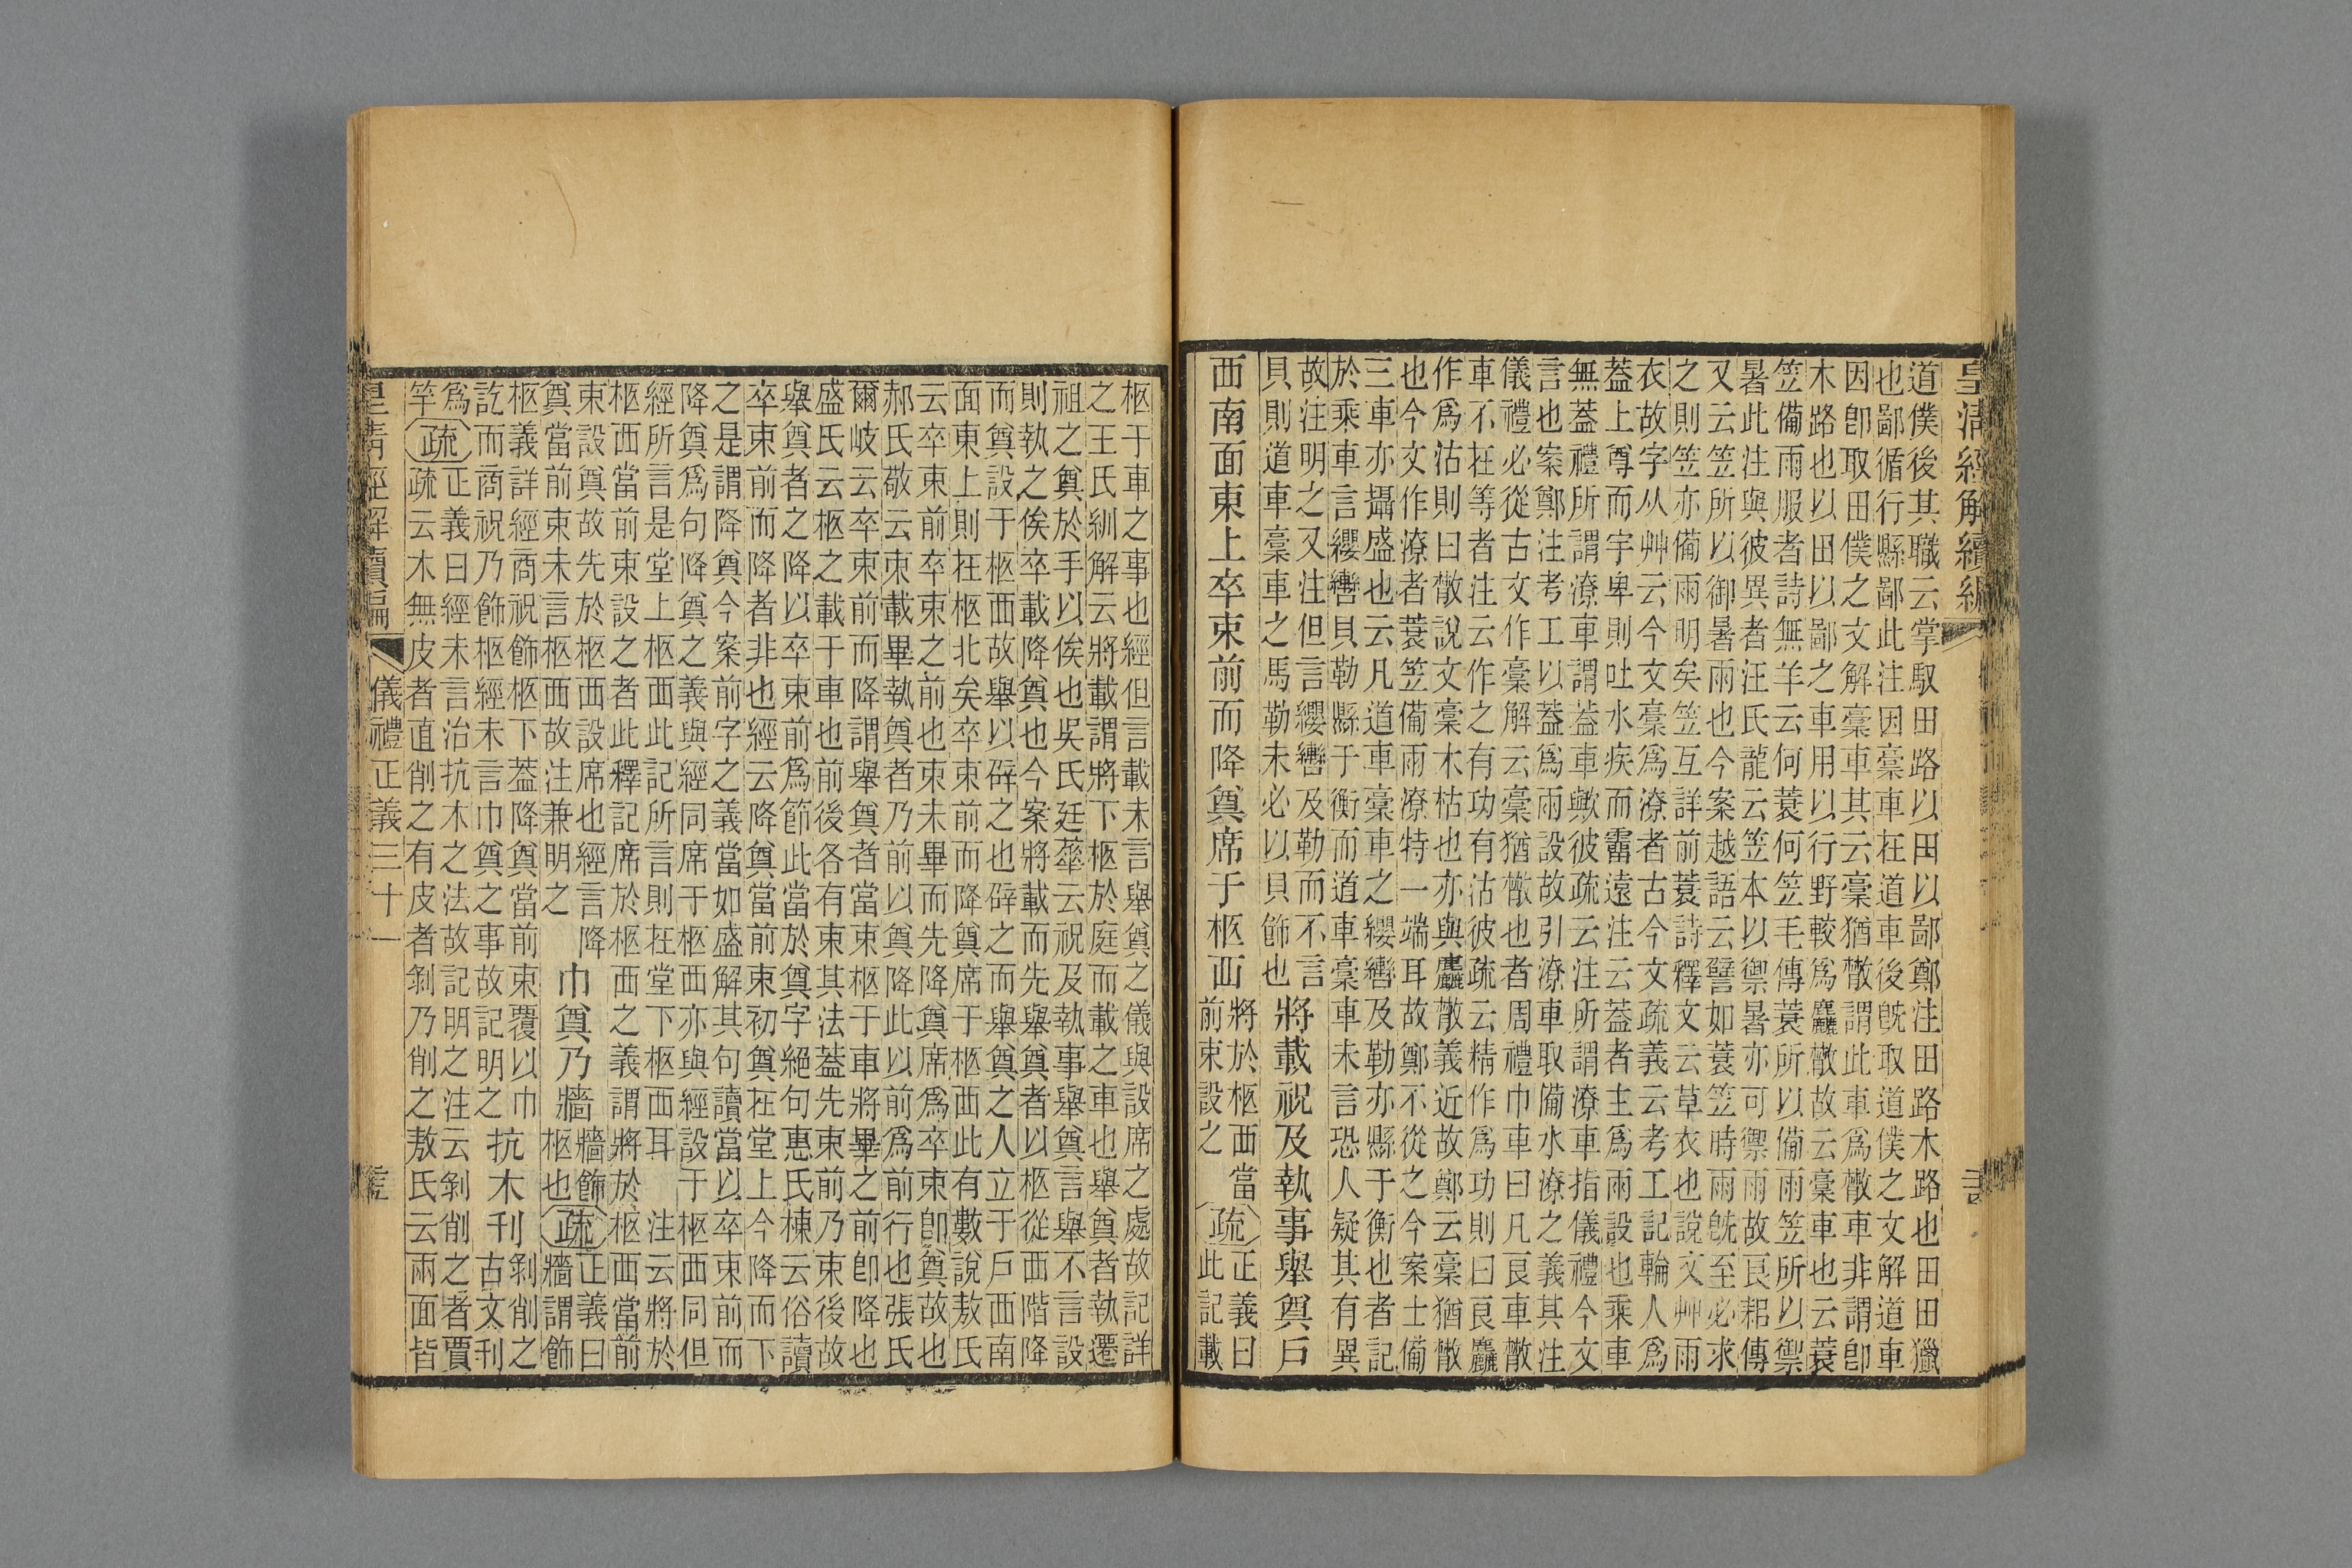 皇清經解續編
道僕後其職云掌馭田路以田以鄙鄭注田路木路也田田獵
也鄙循行縣鄙此注因稾車在道車後旣取道僕之文解道車
因卽取田僕之文解稾車其云稾猶散謂此車爲散車非謂卽
木路也以田以鄙之車用以行野較爲麤散故云稾車也云蓑
笠備雨服者詩無羊云何蓑何笠毛傳蓑所以備雨笠所以禦
暑此注與彼異者汪氏龍云笠本以禦暑亦可禦雨故良耜傳
又云笠所以御暑雨也今案越語云譬如蓑笠時雨旣至必求
之則笠亦備雨明矣笠互詳前蓑詩釋文云草衣也說文艸雨
衣故字从艸云今文稾爲潦者古今文疏義云考工記輪人爲
蓋上尊而宇卑則吐水疾而霤遠注云蓋者主爲雨設也乘車
無蓋禮所謂潦車謂蓋車歟彼疏云注所謂潦車指儀禮今文
言也案鄭注考工以蓋爲雨設故引潦車取備水潦之義其注
儀禮必從古文作稾解云稾猶散也者周禮巾車曰凡良車散
車不在等者注云作之有功有沽彼疏云精作爲功則曰良麤
作爲沽則曰散說文稾木枯也亦與麤散義近故鄭云稾猶散
也今文作潦者蓑笠備雨潦特一端耳故鄭不從之今案士備
三車亦攝盛也云凡道車稾車之纓轡及勒亦縣于衡也者記
於乘車言纓轡貝勒縣于衡而道車稾車未言恐人疑其有異
故注明之又注但言纓轡及勒而不言
貝則道車稾車之馬勒未必以貝飾也
將載祝及執事舉奠戶
西南面東上卒束前而降奠席于柩西
將於柩西當
前束設之
疏
正義曰
此記載
柩于車之事也經但言載未言舉奠之儀與設席之處故記詳
之王氏紃解云將載謂將下柩於庭而載之車也舉奠者執遷
祖之奠於手以俟也吳氏廷華云祝及執事舉奠言舉不言設
則執之俟卒載降奠也今案將載而先舉奠者以柩從西階降
而奠設于柩西故舉以辟之也辟之而舉奠之人立于戶西南
面東上則在柩北矣卒束前而降奠席于柩西此有數說敖氏
云卒束前卒束之前也束未畢而先降奠席爲卒束卽奠故也
郝氏敬云束載畢執奠者乃前以奠降此以前爲前行也張氏
爾岐云卒束前而降謂舉奠者當束柩于車將畢之前卽降也
盛氏云柩之載于車也前後各有束其法蓋先束前乃束後故
舉奠者之降以卒束前爲節此當於奠字絕句惠氏棟云俗讀
卒束前而降者非也經云降奠當前束初奠在堂上今降而下
之是謂降奠今案前字之義當如盛解其句讀當以卒束前而
降奠爲句降奠之義與經同席于柩西亦與經設于柩西同但
經所言是堂上柩西此記所言則在堂下柩西耳　注云將於
柩西當前束設之者此釋記席於柩西之義謂將於柩西當前
東設奠故先於柩西設席也經言降
奠當前束未言柩西故注兼明之
巾奠乃牆
牆飾
柩也
疏
正義曰
牆謂飾
柩義詳經商祝飾柩下蓋降奠當前束覆以巾
訖而商祝乃飾柩經未言巾奠之事故記明之
抗木刊
剝削之
古文刊
爲
竿
疏
正義曰經未言治抗木之法故記明之注云剝削之者賈
疏云木無皮者直削之有皮者剝乃削之敖氏云兩面皆
皇清經解續編
儀禮正義三十一